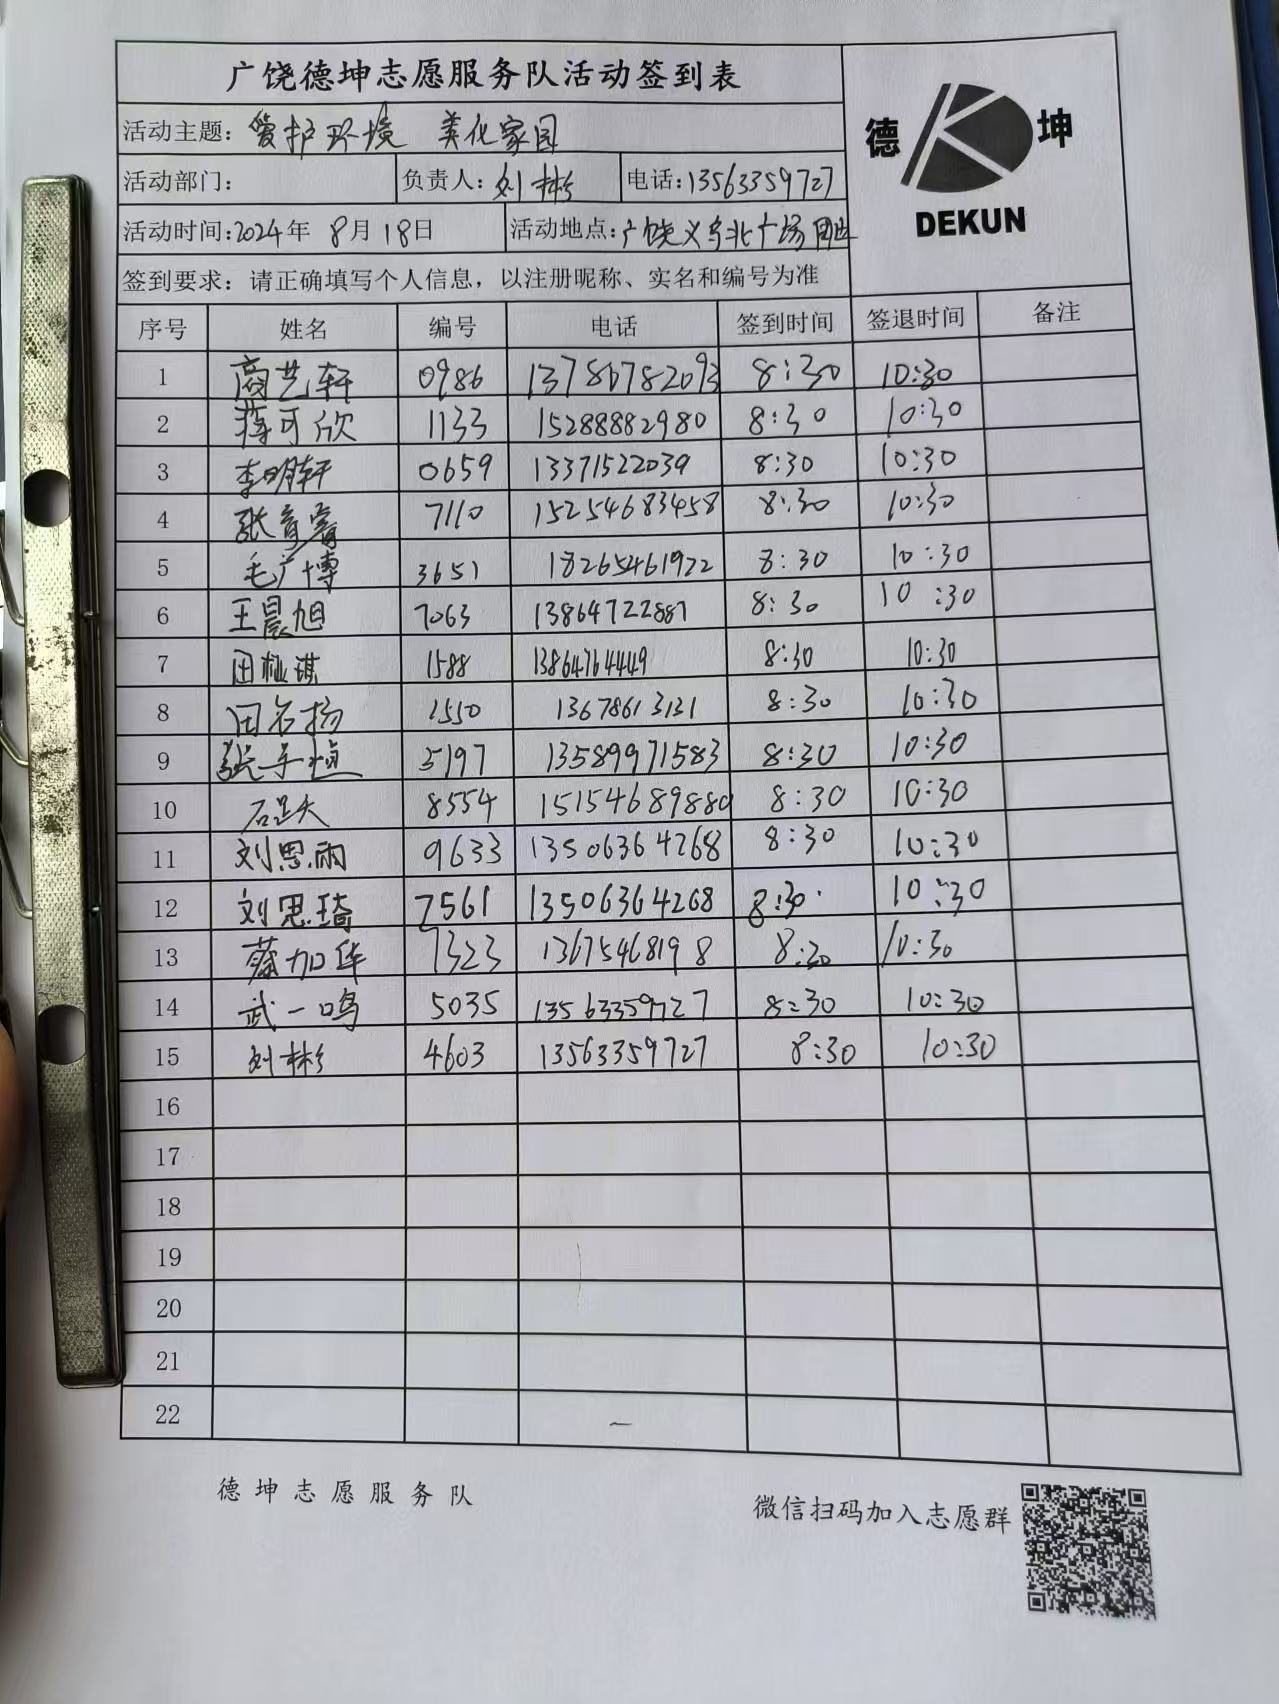 广饶德坤志愿服务队活动签到表
活动主题：爱护环境 美化家园
德 坤
DEKUN
活动部门： 负责人：刘彬 电话：13563359727
活动时间：2024年 8月18日 活动地点：广饶义乌北广场周边
签到要求：请正确填写个人信息，以注册昵称、实名和编号为准
序号 姓名 编号 电话 签到时间 签退时间 备注
1 商艺轩 0986 13780782093 8:30 10:30
2 蒋可欣 1133 15288882980 8:30 10:30
3 李明轩 0659 13371522039 8:30 10:30
4 张育睿 7110 15254683458 8:30 10:30
5 毛广博 3651 18265461922 8:30 10:30
6 王晨旭 7063 13864722887 8:30 10:30
7 田 1588 13864764449 8:30 10:30
8 田名扬 1550 13678613131 8:30 10:30
9 张子恒 5197 13589971583 8:30 10:30
10 石昊天 8554 15154689880 8:30 10:30
11 刘思雨 9633 13506364268 8:30 10:30
12 刘思琦 7561 13506364268 8:30 10:30
13 加华 7323 13675468198 8:30 10:30
14 武一鸣 5035 13563359727 8:30 10:30
15 刘彬 4603 13563359727 8:30 10:30
16
17
18
19
20
21
22
德坤志愿服务队
微信扫码加入志愿群